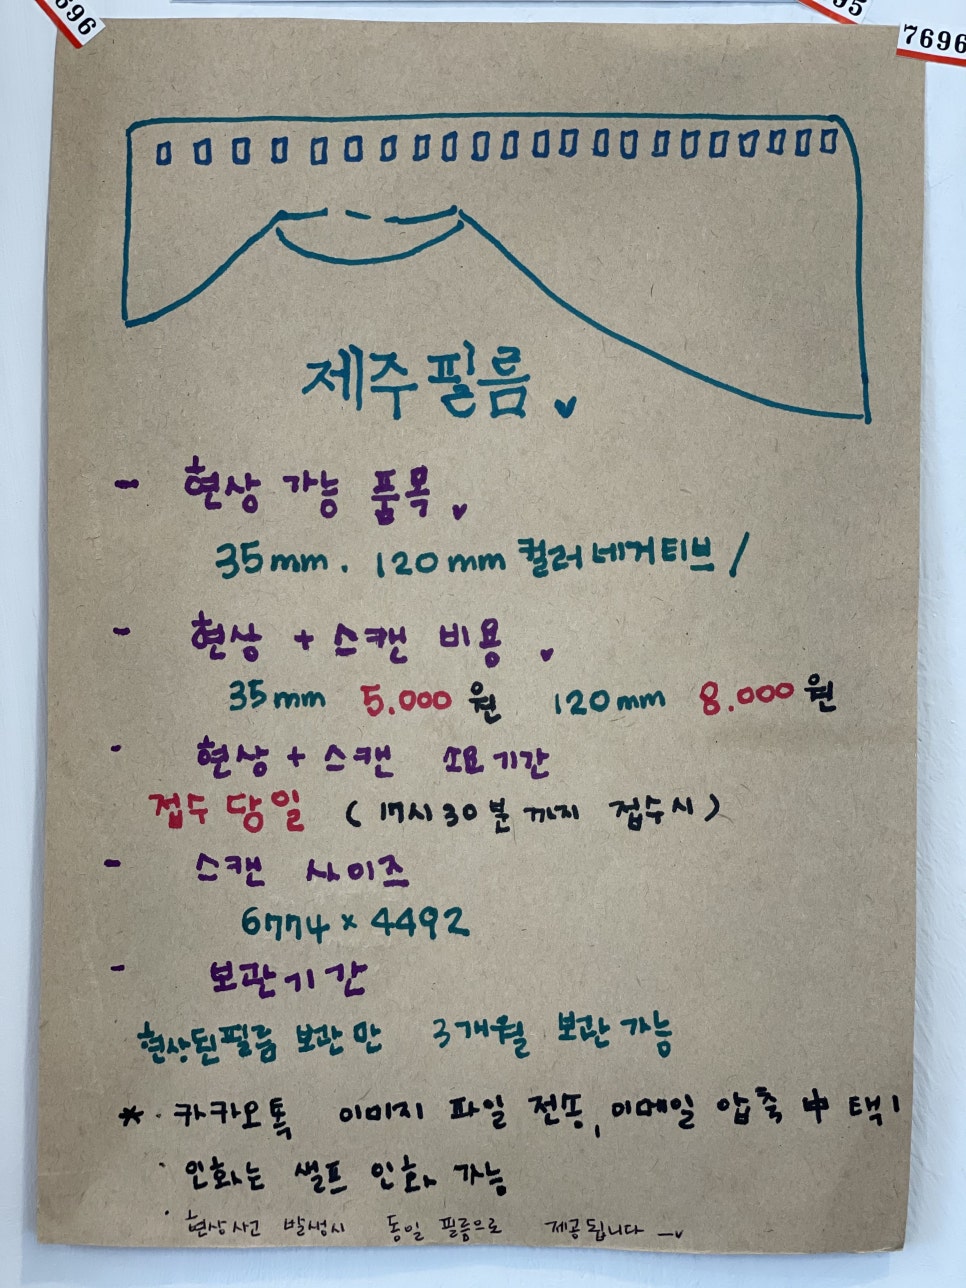 696
95
7696
제주필름
- 현상 가능 품목
35mm. 120mm 컬러네거티브 /
- 현상 + 스캔 비용
35mm 5.000원 120mm 8.000원
- 현상 + 스캔 소요기간
접수 당일 (17시30분까지 접수시)
- 스캔 사이즈
6774 x 4492
- 보관기간
현상된필름 보관만 3개월 보관가능
* · 카카오톡 이미지 파일 전송, 이메일 압축 中 택1
· 인화는 셀프 인화 가능
· 현상사고 발생시 동일 필름으로 제공됩니다